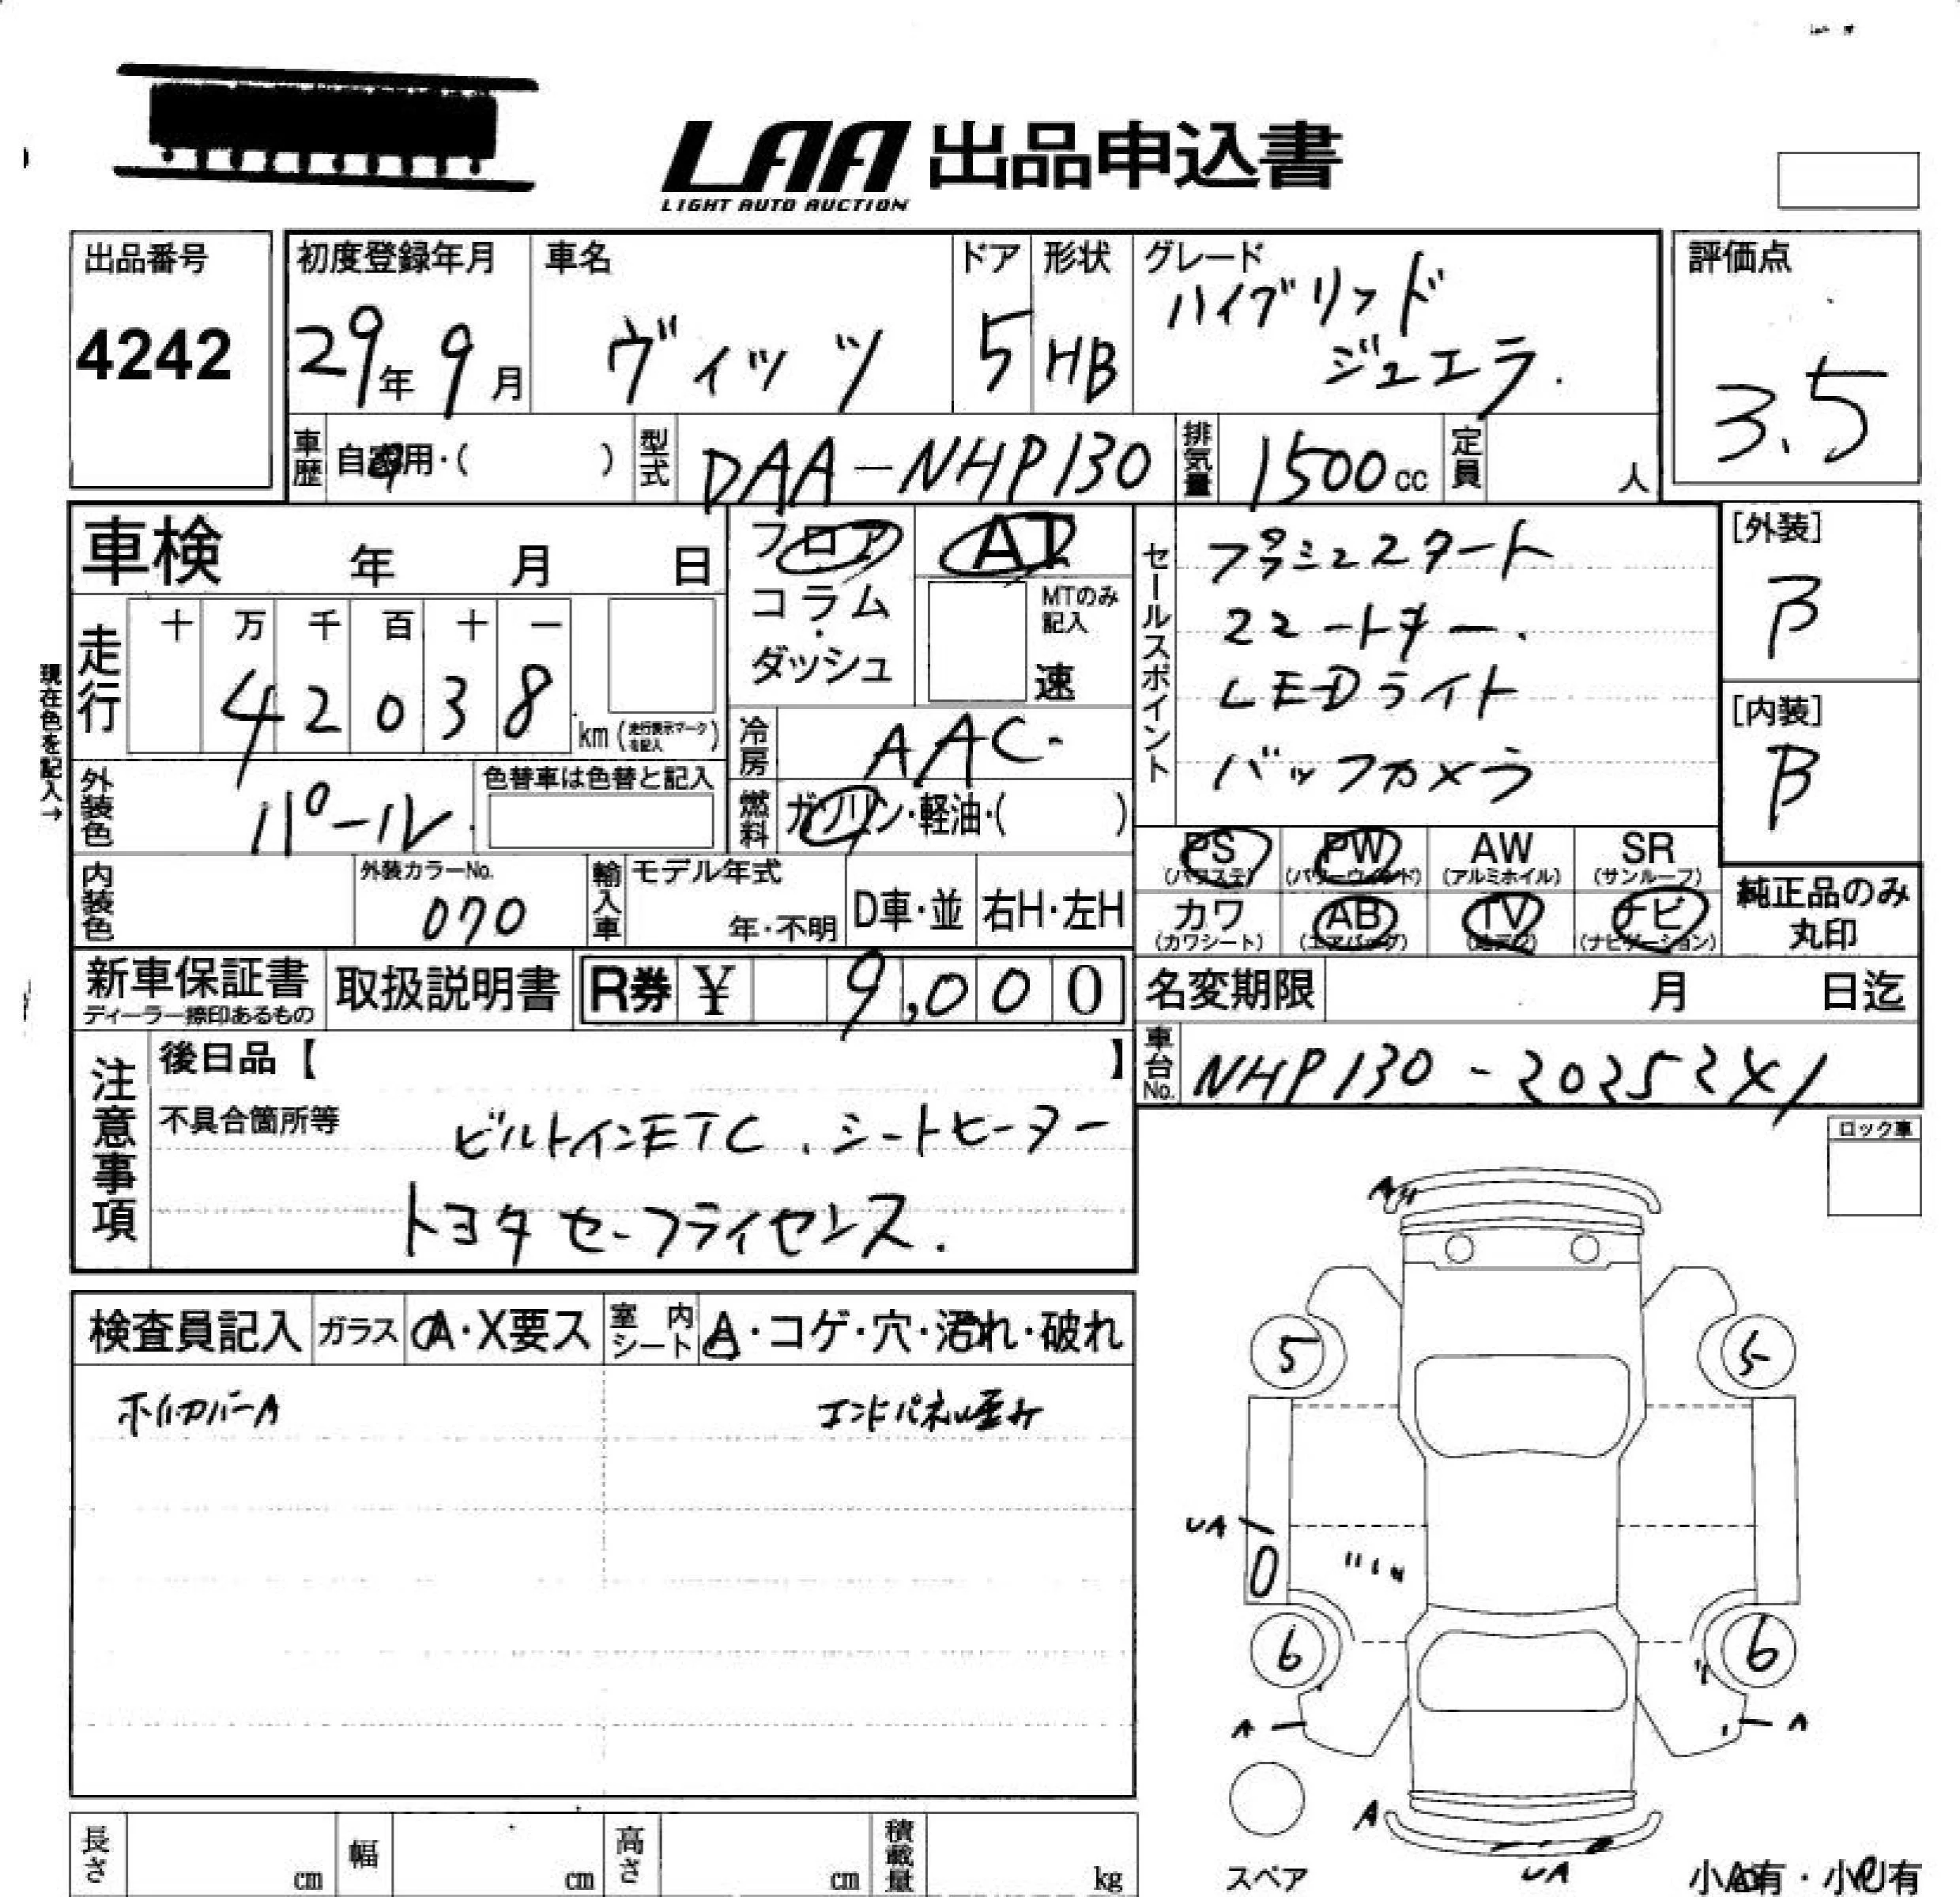 LAA 出品申込書
LIGHT AUTO AUCTION
出品番号
4242
初度登録年月
29年 9月
車名
ヴィッツ
ドア
5
形状
HB
グレード
ハイブリッド
ジュエラ.
評価点
3.5
車歴 自家用・( )
型式 DAA-NHP130
排気量 1500cc
定員 人
車検 年 月 日
フロア
コラム
・
ダッシュ
AT
MTのみ
記入
速
走行
十 万 千 百 十 一
4 2 0 3 8
km (走行表示マークを記入)
現在色を記入→
冷房 AAC
燃料 ガソリン・軽油・( )
外装色 パール
色替車は色替と記入
内装色
外装カラーNo.
070
輸入車
モデル年式
年・不明
D車・並
右H・左H
セールスポイント
プッシュスタート
スマートキー.
LEDライト
バックカメラ
[外装]
B
[内装]
B
PS (パワステ)
PW (パワーウィンド)
AW (アルミホイル)
SR (サンルーフ)
カワ (カワシート)
AB (エアバッグ)
TV (地デジ)
ナビ (ナビゲーション)
純正品のみ
丸印
新車保証書
ディーラー捺印あるもの
取扱説明書
R券 ¥ 9,000
名変期限 月 日迄
車台No. NHP130-20252X1
注意事項
後日品【 】
不具合箇所等
ビルトインETC、シートヒーター
トヨタ セーフティセンス.
ロック車
検査員記入
ガラス A・X要ス
室内シート A・コゲ・穴・汚れ・破れ
ホイルカバーA
エンドパネル歪み
A
5
5
UA
0
6
6
A
A
A
UA
スペア
小A有・小U有
長さ cm
幅 cm
高さ cm
積載量 kg